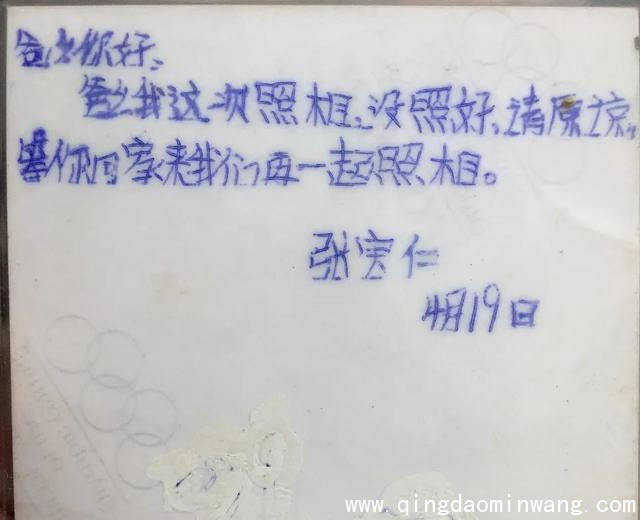 爸爸你好、
爸爸我这次照相、没照好、请原谅。
等你回家来我们再一起照相。
张宝仁
4月19日
www.qingdaominwang.com